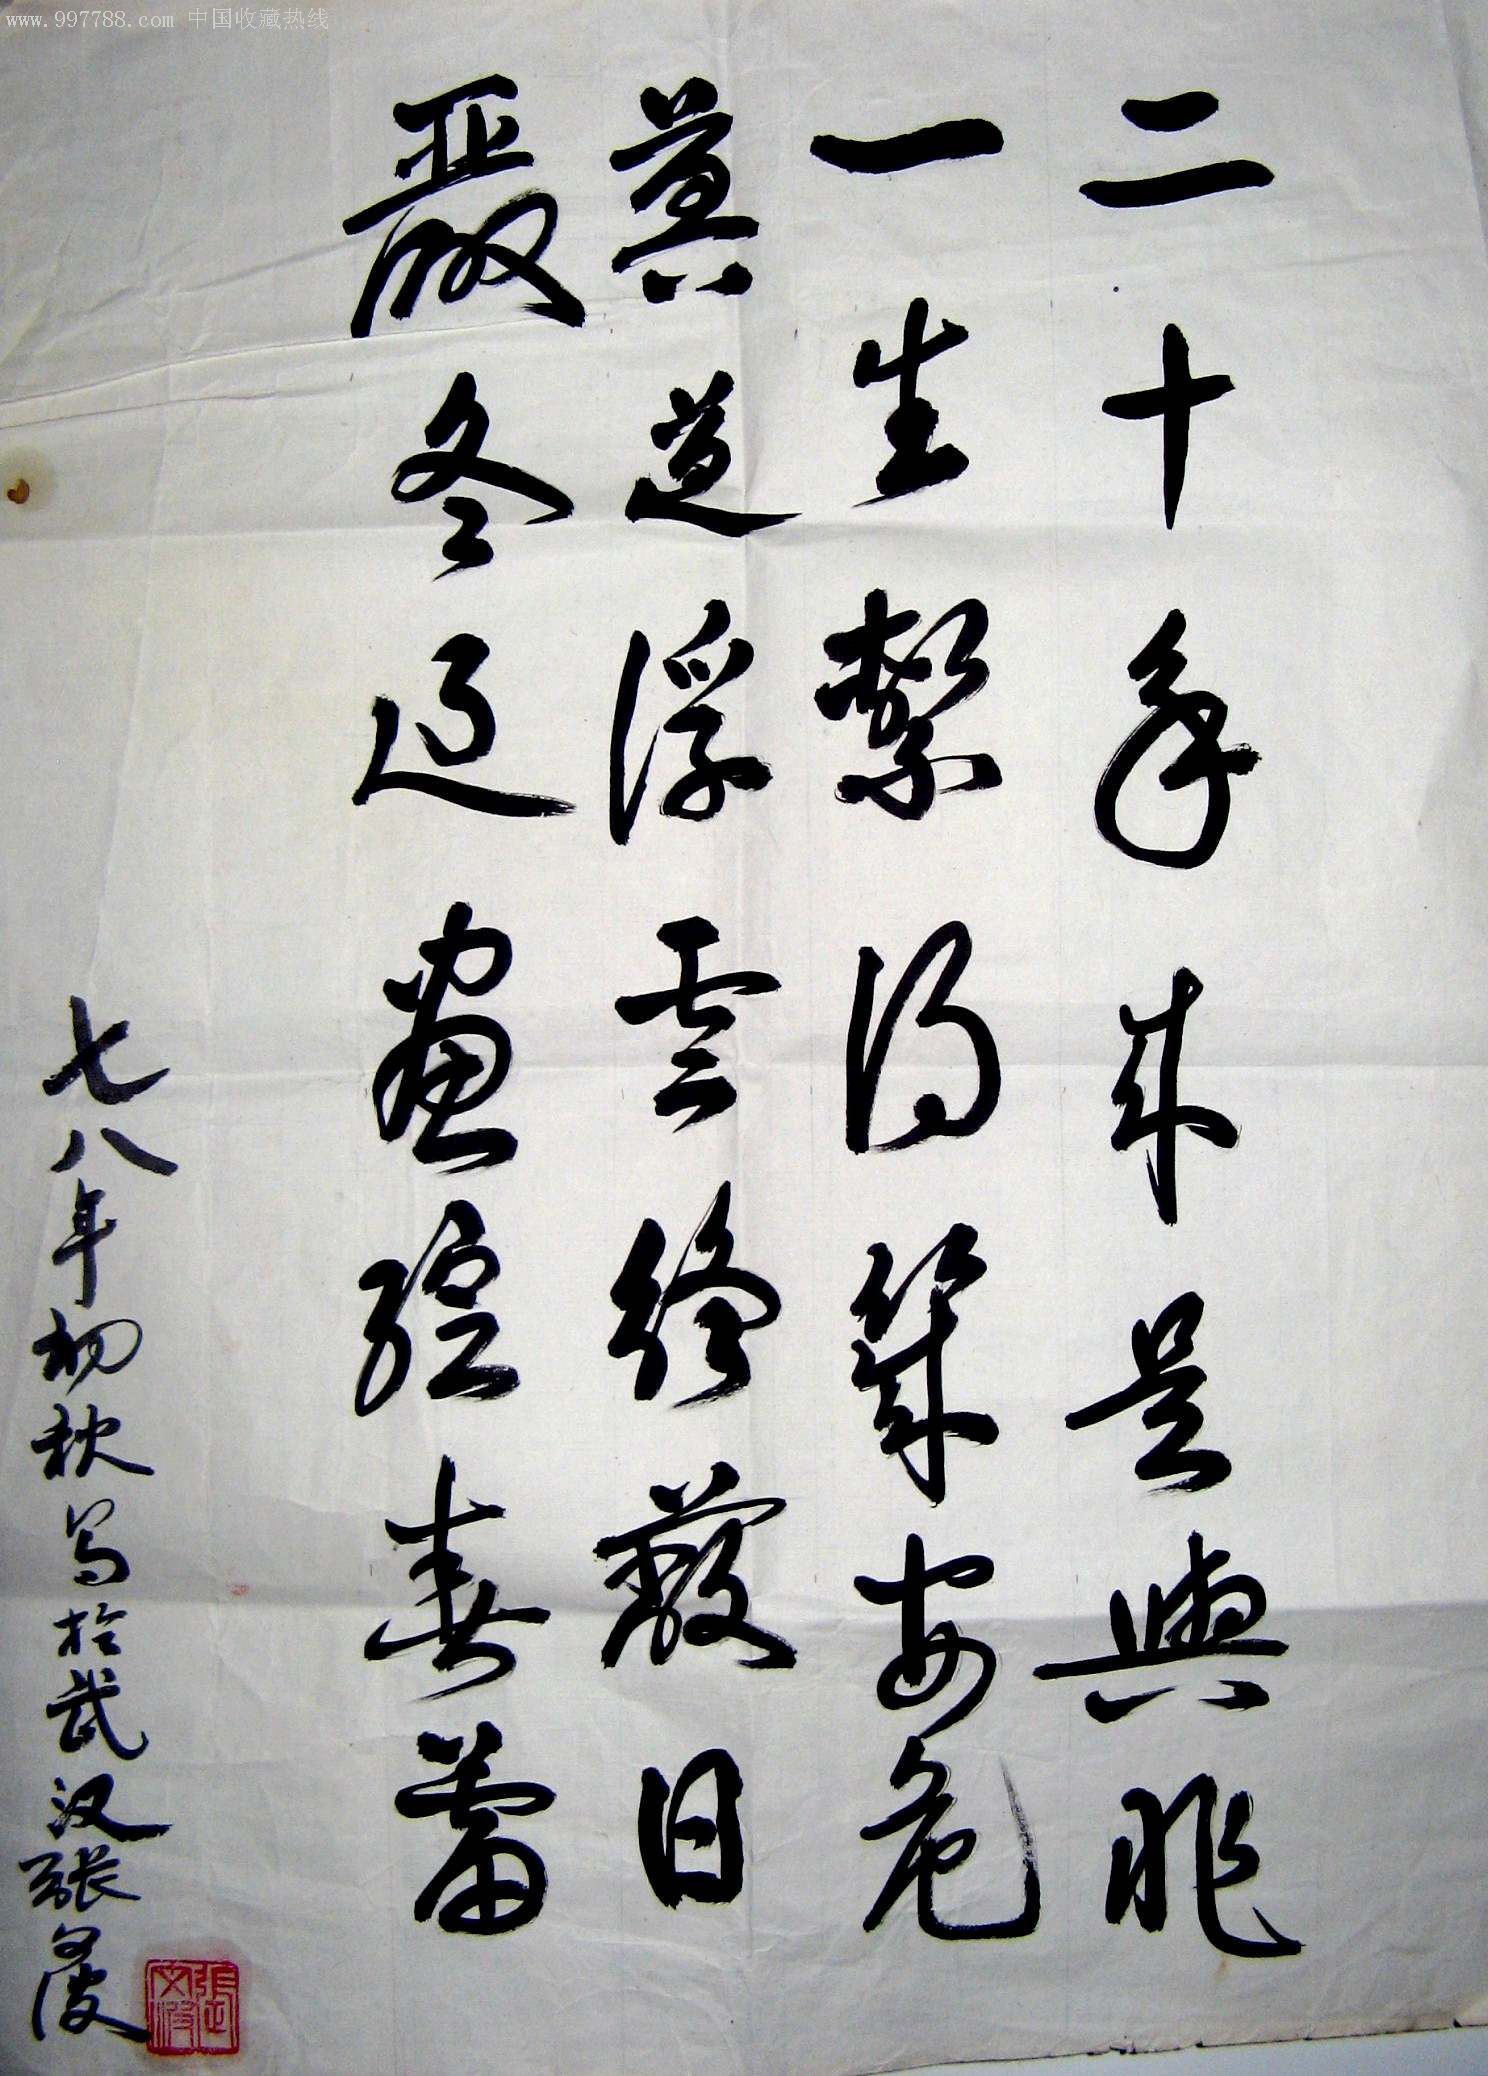 www.997788.com 中国收藏热线
二十年來是與非
一生繫得幾安危
莫道浮雲終蔽日
嚴冬過盡綻春蕾
七八年初秋写於武汉張文